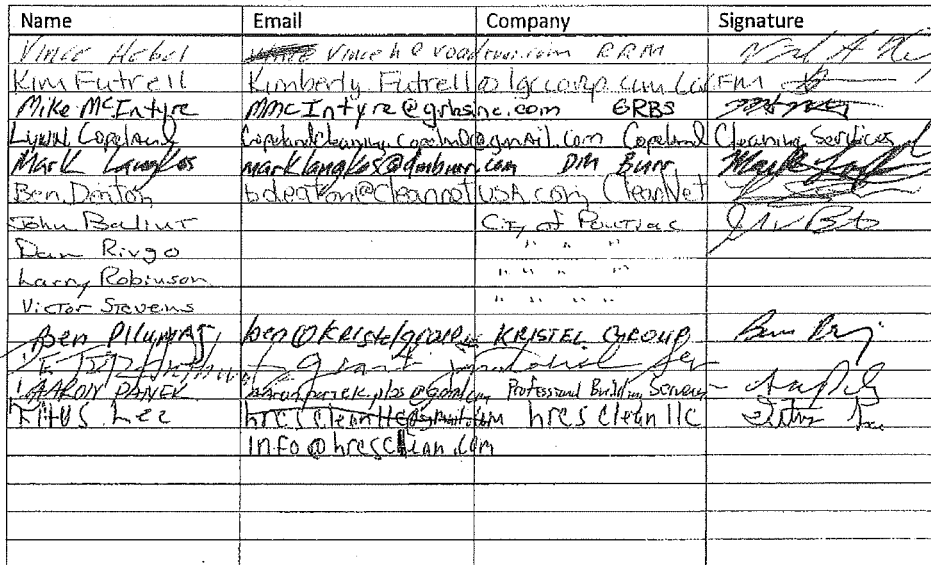 Name Email Company Signature
Vince Hebel Vinceh@roadrei.com RRM
Kim Futrell Kimberly.Futrell@lgccorp.com FM
Mike McIntyre MMcIntyre@grbsinc.com GRBS
Lynn Copeland Copelandcleaning.copeland@gmail.com Copeland Cleaning Services
Mark Langlos marklanglos@dmburr.com DM Burr
Ben Denton bdeaton@CleannetUSA.com CleanNet
John Balint City of Pontiac
Dan Ringo " " "
Larry Robinson " " " "
Victor Stevens " " " "
Ben Pilumas ben@Kristelgroup KRISTEL GROUP
Grant Janitorial Ser
AARON PANEK aaron.panek.pbs@gmail.com Professional Building Services
Titus Lee hrescleanllc@gmail.com hres clean llc
info@hresclean.com